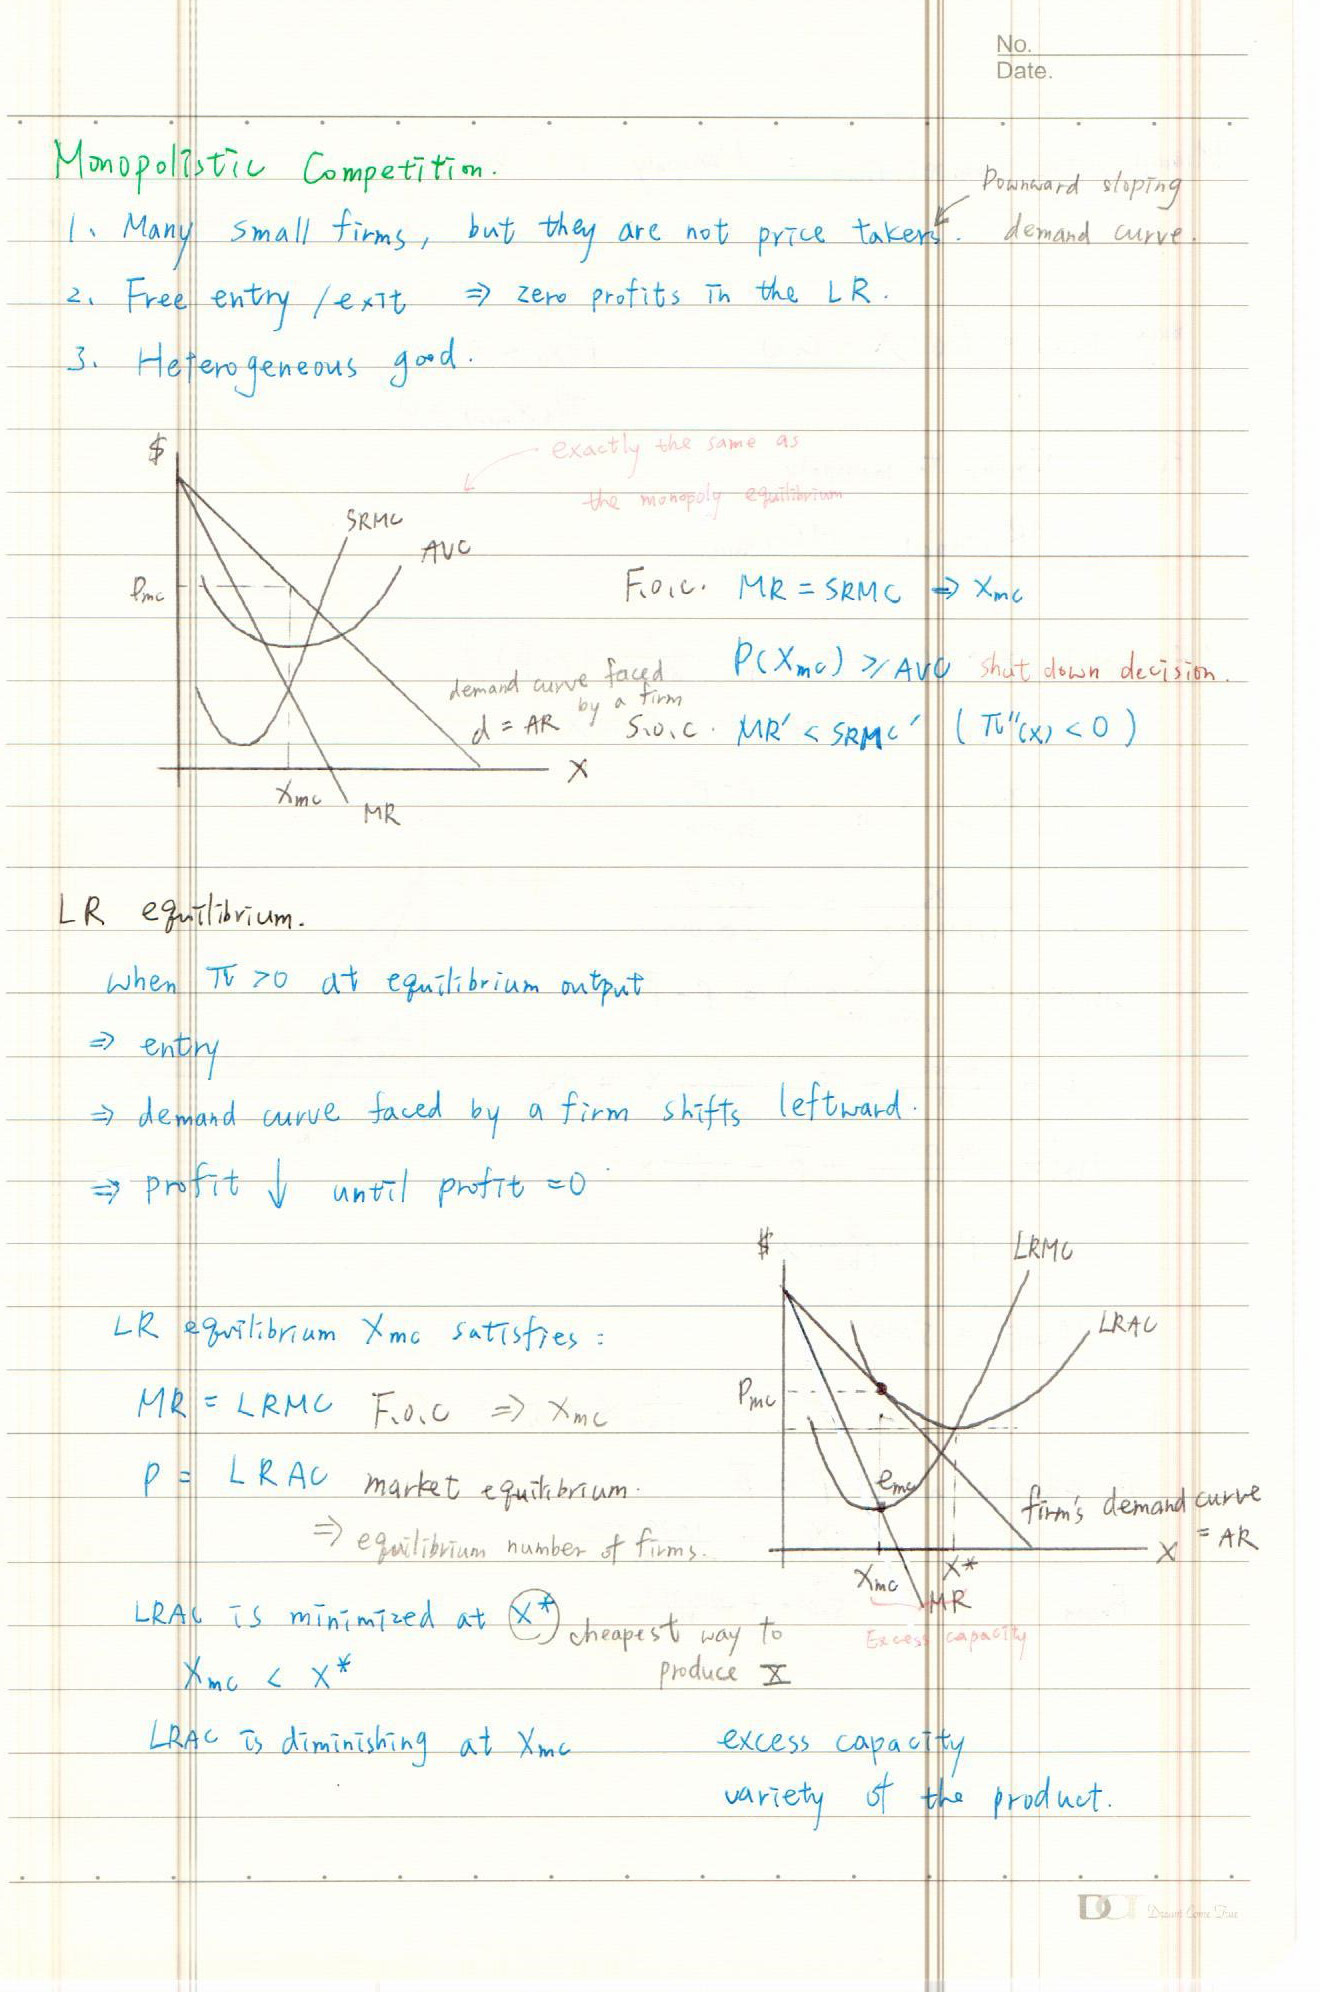 No.
Date.
Monopolistic Competition.
Downward sloping
demand curve.
1. Many small firms, but they are not price takers.
2. Free entry / exit ⇒ zero profits in the LR.
3. Heterogeneous good.
exactly the same as
the monopoly equilibrium
$
SRMC
AVC
Pmc
demand curve faced
by a firm
d = AR
X
Xmc
MR
F.o.c. MR = SRMC ⇒ Xmc
P(Xmc) ≥ AVC shut down decision.
S.o.c. MR' < SRMC' (π''(x) < 0)
LR equilibrium.
when π > 0 at equilibrium output
⇒ entry
⇒ demand curve faced by a firm shifts leftward.
⇒ profit ↓ until profit = 0
LR equilibrium Xmc satisfies:
MR = LRMC F.o.c ⇒ Xmc
P = LRAC market equilibrium.
⇒ equilibrium number of firms.
$
LRMC
LRAC
Pmc
emc
firm's demand curve
= AR
X
Xmc
X*
MR
Excess capacity
LRAC is minimized at X* cheapest way to
produce X
Xmc < X*
LRAC is diminishing at Xmc
excess capacity
variety of the product.
Dream Come True